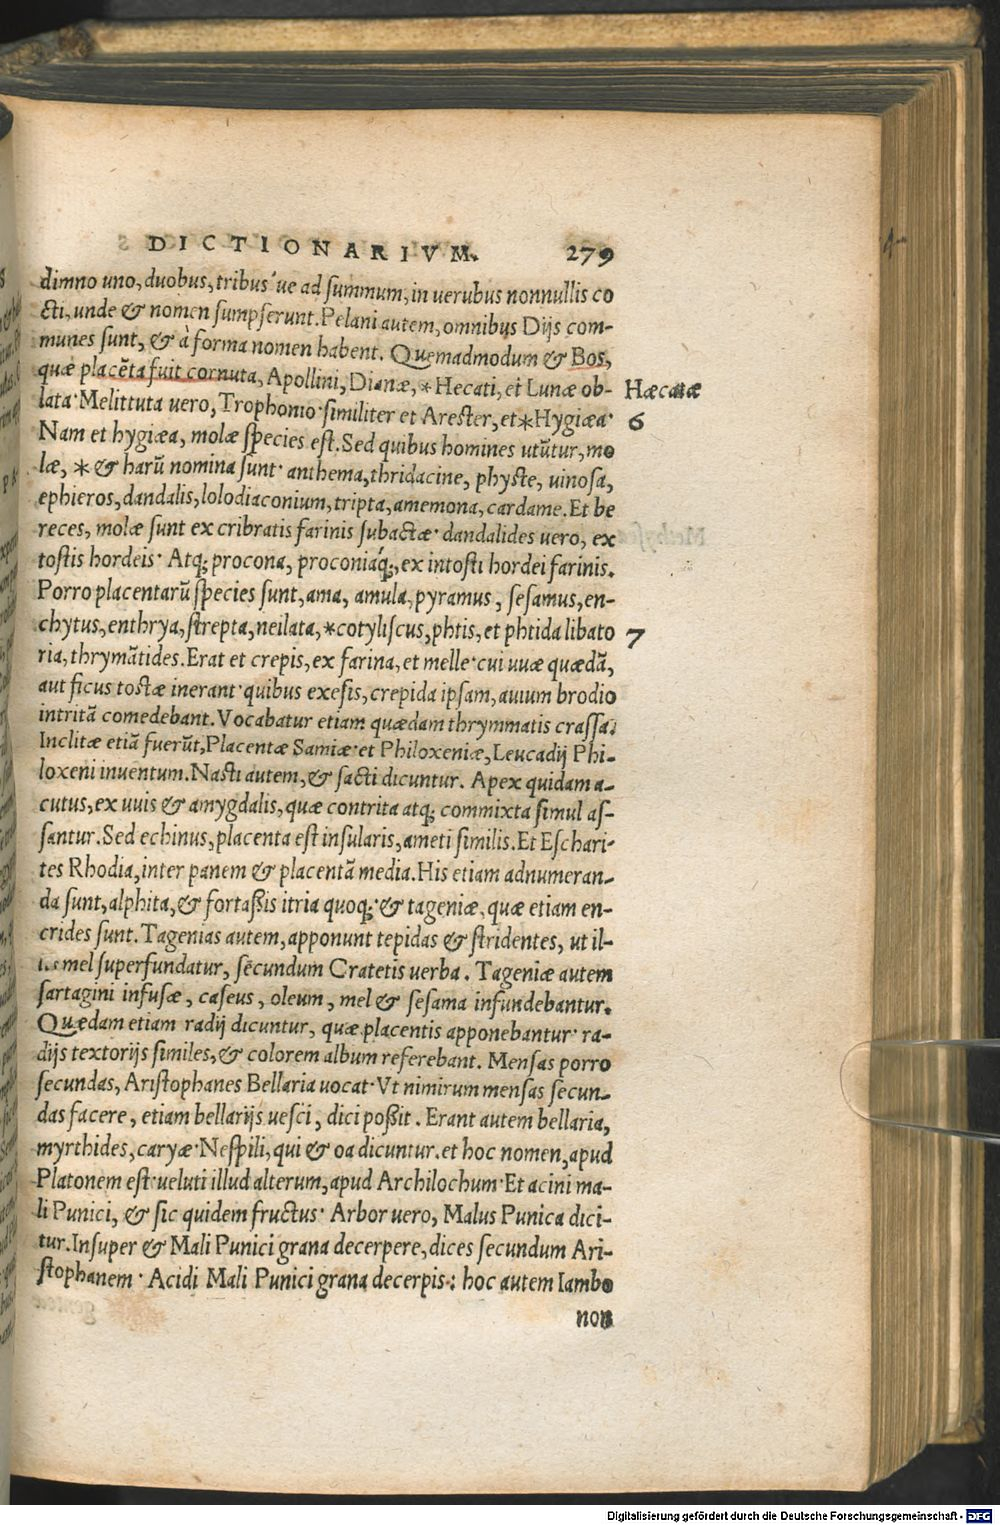 DICTIONARIVM. 279
dimno uno, duobus, tribus'ue ad summum, in uerubus nonnullis co
cti, unde & nomen sumpserunt. Pelani autem, omnibus Dijs com-
munes sunt, & à forma nomen habent. Quemadmodum & Bos,
quæ placēta fuit cornuta, Apollini, Dianæ, *Hecati, et Lunæ ob- Hæcatæ
lata· Melittuta uero, Trophonio· similiter et Arester, et *Hygiæa· 6
Nam et hygiæa, molæ species est. Sed quibus homines utūtur, mo
læ, * & harū nomina sunt· anthema, thridacine, physte, uinosa,
ephieros, dandalis, lolodiaconium, tripta, amemona, cardame. Et be
reces, molæ sunt ex cribratis farinis subactæ· dandalides uero, ex
tostis hordeis· Atq; procona, proconiáq;, ex intosti hordei farinis.
Porro placentarū species sunt, ama, amula, pyramus, sesamus, en-
chytus, enthrya, strepta, neilata, *cotyliscus, phtis, et phtida libato 7
ria, thrymātides. Erat et crepis, ex farina, et melle· cui uuæ quædā,
aut ficus tostæ inerant· quibus exesis, crepida ipsam, auium brodio
intritā comedebant. Vocabatur etiam quædam thrymmatis crassa.
Inclitæ etiā fuerūt, Placentæ Samiæ· et Philoxeniæ, Leucadij Phi-
loxeni inuentum. Nasti autem, & sacti dicuntur. Apex quidam a-
cutus, ex uuis & amygdalis, quæ contrita atq; commixta simul as-
santur. Sed echinus, placenta est insularis, ameti similis. Et Eschari-
tes Rhodia, inter panem & placentā media. His etiam adnumeran-
da sunt, alphita, & fortaßis itria quoq;· & tageniæ, quæ etiam en-
crides sunt. Tagenias autem, apponunt tepidas & stridentes, ut il-
mel superfundatur, secundum Cratetis uerba. Tageniæ autem
sartagini infusæ, caseus, oleum, mel & sesama infundebantur.
Quædam etiam radij dicuntur, quæ placentis apponebantur· ra-
dijs textorijs similes, & colorem album referebant. Mensas porro
secundas, Aristophanes Bellaria uocat· Vt nimirum mensas secun-
das facere, etiam bellarijs uesci, dici poßit. Erant autem bellaria,
myrthides, caryæ· Nespili, qui & oa dicuntur. et hoc nomen, apud
Platonem est· ueluti illud alterum, apud Archilochum· Et acini ma-
li Punici, & sic quidem fructus· Arbor uero, Malus Punica dici-
tur. Insuper & Mali Punici grana decerpere, dices secundum Ari-
stophanem· Acidi Mali Punici grana decerpis: hoc autem Iambo
non
Digitalisierung gefördert durch die Deutsche Forschungsgemeinschaft - DFG